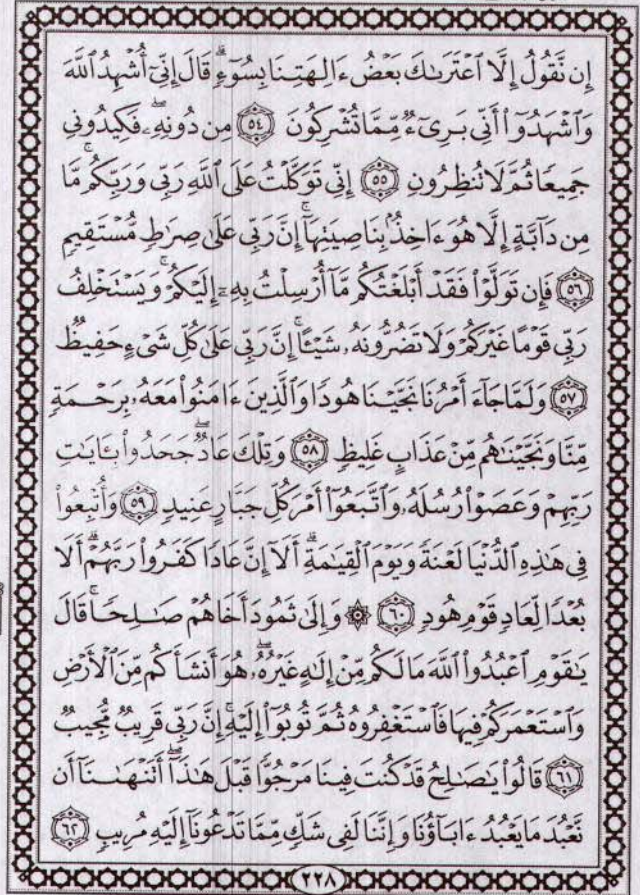 إِن نَّقُولُ إِلَّا ٱعْتَرَىٰكَ بَعْضُ ءَالِهَتِنَا بِسُوٓءٍۗ قَالَ إِنِّىٓ أُشْهِدُ ٱللَّهَ
وَٱشْهَدُوٓا۟ أَنِّى بَرِىٓءٌ مِّمَّا تُشْرِكُونَ ٥٤ مِن دُونِهِۦۖ فَكِيدُونِى
جَمِيعًا ثُمَّ لَا تُنظِرُونِ ٥٥ إِنِّى تَوَكَّلْتُ عَلَى ٱللَّهِ رَبِّى وَرَبِّكُمۚ مَّا
مِن دَآبَّةٍ إِلَّا هُوَ ءَاخِذٌۢ بِنَاصِيَتِهَآۚ إِنَّ رَبِّى عَلَىٰ صِرَٰطٍ مُّسْتَقِيمٍ
٥٦ فَإِن تَوَلَّوْا۟ فَقَدْ أَبْلَغْتُكُم مَّآ أُرْسِلْتُ بِهِۦٓ إِلَيْكُمْۚ وَيَسْتَخْلِفُ
رَبِّى قَوْمًا غَيْرَكُمْ وَلَا تَضُرُّونَهُۥ شَيْـًٔاۚ إِنَّ رَبِّى عَلَىٰ كُلِّ شَىْءٍ حَفِيظٌ
٥٧ وَلَمَّا جَآءَ أَمْرُنَا نَجَّيْنَا هُودًا وَٱلَّذِينَ ءَامَنُوا۟ مَعَهُۥ بِرَحْمَةٍ
مِّنَّا وَنَجَّيْنَٰهُم مِّنْ عَذَابٍ غَلِيظٍ ٥٨ وَتِلْكَ عَادٌۖ جَحَدُوا۟ بِـَٔايَٰتِ
رَبِّهِمْ وَعَصَوْا۟ رُسُلَهُۥ وَٱتَّبَعُوٓا۟ أَمْرَ كُلِّ جَبَّارٍ عَنِيدٍ ٥٩ وَأُتْبِعُوا۟
فِى هَٰذِهِ ٱلدُّنْيَا لَعْنَةً وَيَوْمَ ٱلْقِيَٰمَةِۗ أَلَآ إِنَّ عَادًا كَفَرُوا۟ رَبَّهُمْۗ أَلَا
بُعْدًا لِّعَادٍ قَوْمِ هُودٍ ٦٠ ۞ وَإِلَىٰ ثَمُودَ أَخَاهُمْ صَٰلِحًاۚ قَالَ
يَٰقَوْمِ ٱعْبُدُوا۟ ٱللَّهَ مَا لَكُم مِّنْ إِلَٰهٍ غَيْرُهُۥۖ هُوَ أَنشَأَكُم مِّنَ ٱلْأَرْضِ
وَٱسْتَعْمَرَكُمْ فِيهَا فَٱسْتَغْفِرُوهُ ثُمَّ تُوبُوٓا۟ إِلَيْهِۚ إِنَّ رَبِّى قَرِيبٌ مُّجِيبٌ
٦١ قَالُوا۟ يَٰصَٰلِحُ قَدْ كُنتَ فِينَا مَرْجُوًّا قَبْلَ هَٰذَآۖ أَتَنْهَىٰنَآ أَن
نَّعْبُدَ مَا يَعْبُدُ ءَابَآؤُنَا وَإِنَّنَا لَفِى شَكٍّ مِّمَّا تَدْعُونَآ إِلَيْهِ مُرِيبٍ ٦٢
٢٢٨